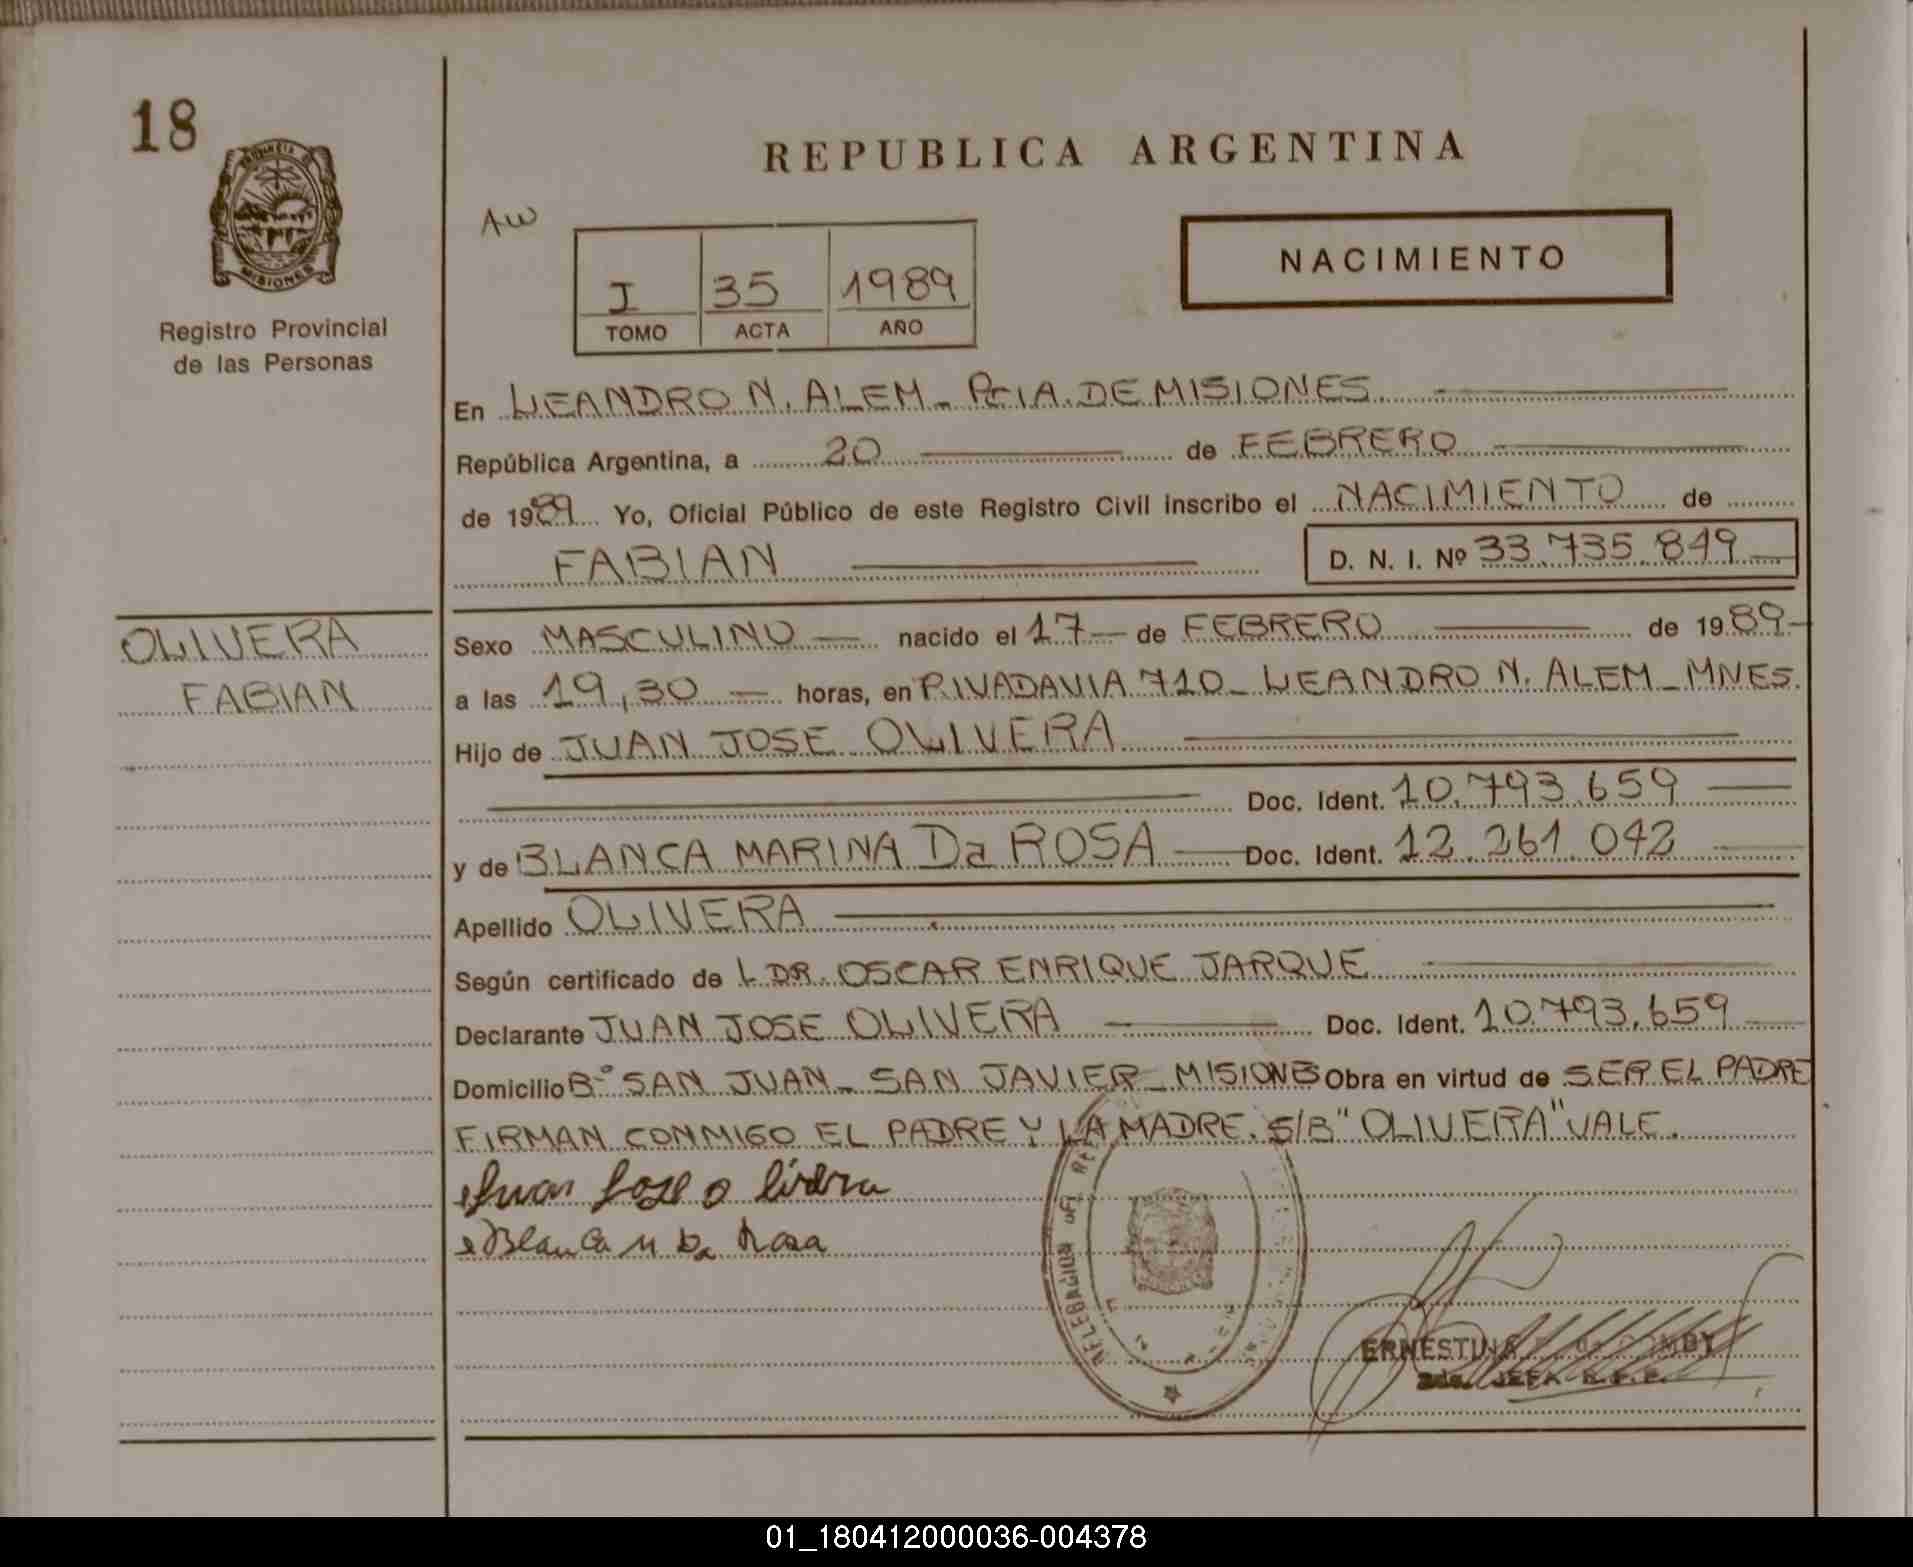 18
PROVINCIA DE
MISIONES
Registro Provincial
de las Personas
REPUBLICA ARGENTINA
AW
I 35 1989
TOMO ACTA AÑO
NACIMIENTO
En LEANDRO N. ALEM - PCIA. DE MISIONES
República Argentina, a 20 de FEBRERO
de 1989 Yo, Oficial Público de este Registro Civil inscribo el NACIMIENTO de
FABIAN D. N. I. Nº 33.735.849
OLIVERA
FABIAN
Sexo MASCULINO nacido el 17 de FEBRERO de 1989
a las 19,30 horas, en RIVADAVIA 710 - LEANDRO N. ALEM - MNES.
Hijo de JUAN JOSE OLIVERA
Doc. Ident. 10.793.659
y de BLANCA MARINA Da ROSA Doc. Ident. 12.261.042
Apellido OLIVERA
Según certificado de L DR. OSCAR ENRIQUE JARQUE
Declarante JUAN JOSE OLIVERA Doc. Ident. 10.793.659
Domicilio Bº SAN JUAN - SAN JAVIER - MISIONES Obra en virtud de SER EL PADRE
FIRMAN CONMIGO EL PADRE Y LA MADRE. S/B "OLIVERA" VALE.
Juan Jose o livera
Blanca M Da Rosa
ERNESTINA
2da. JEFA R.P.P.
01_180412000036-004378